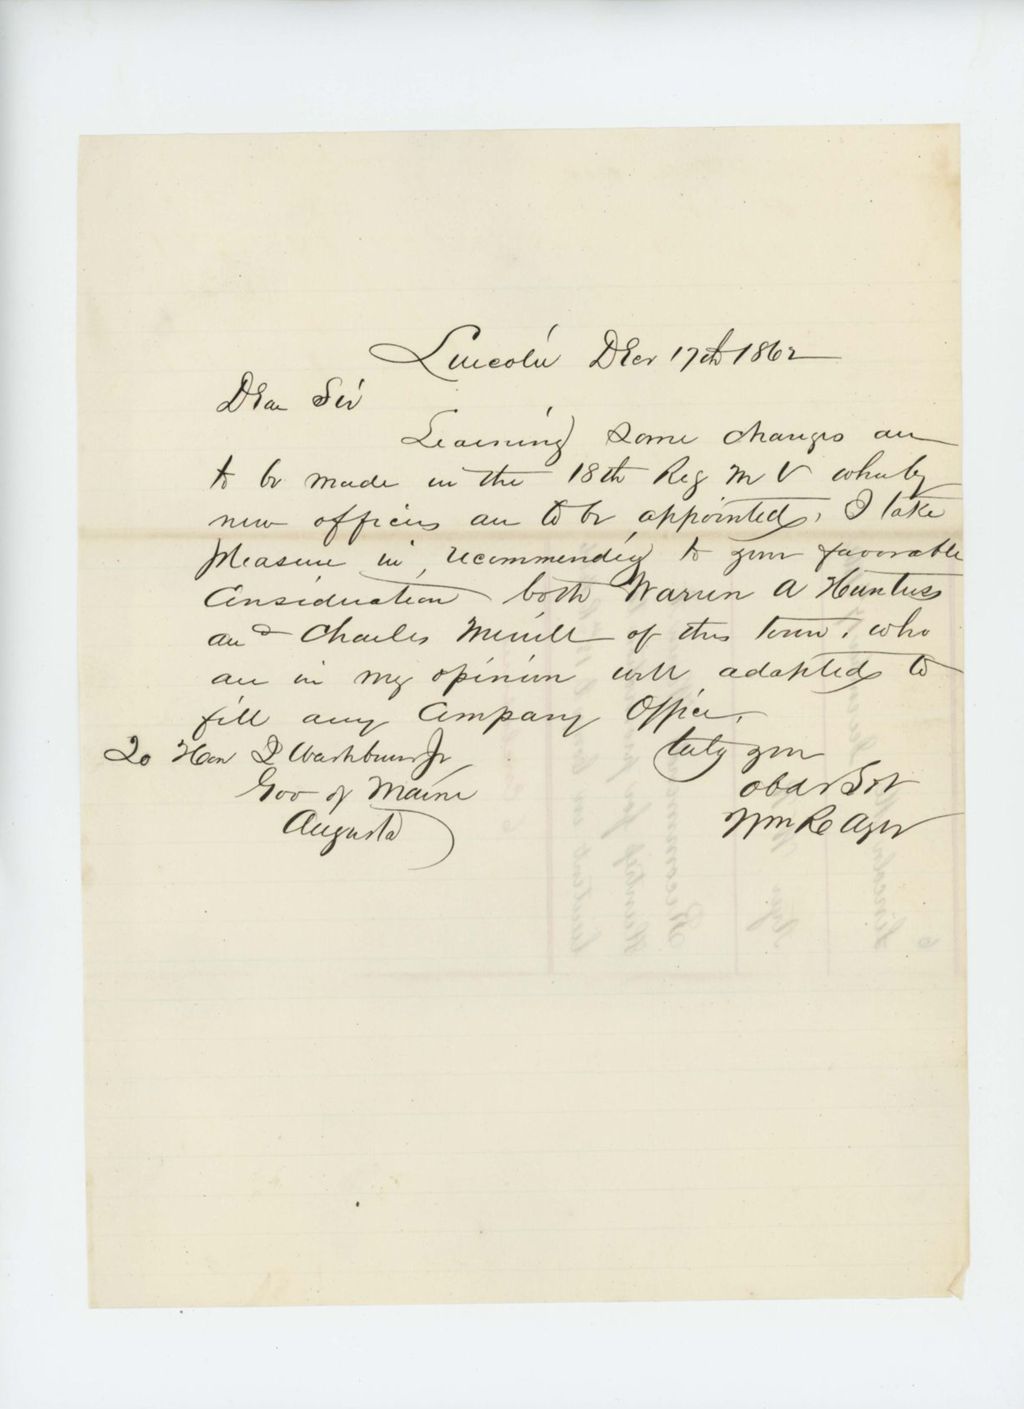 Lincoln Decr 17th 1862
Dear Sir
Learning some changes are
to be made in the 18th Reg M V whereby
new officers are to be appointed, I take
pleasure in recommending to your favorable
Consideration both Warren A Huntress
and Charles Merrill of this town, who
are in my opinion well adapted to
fill any Company Office,
truly your
obdt Svt
Wm R Ayer
To Hon I Washburn Jr
Gov of Maine
Augusta